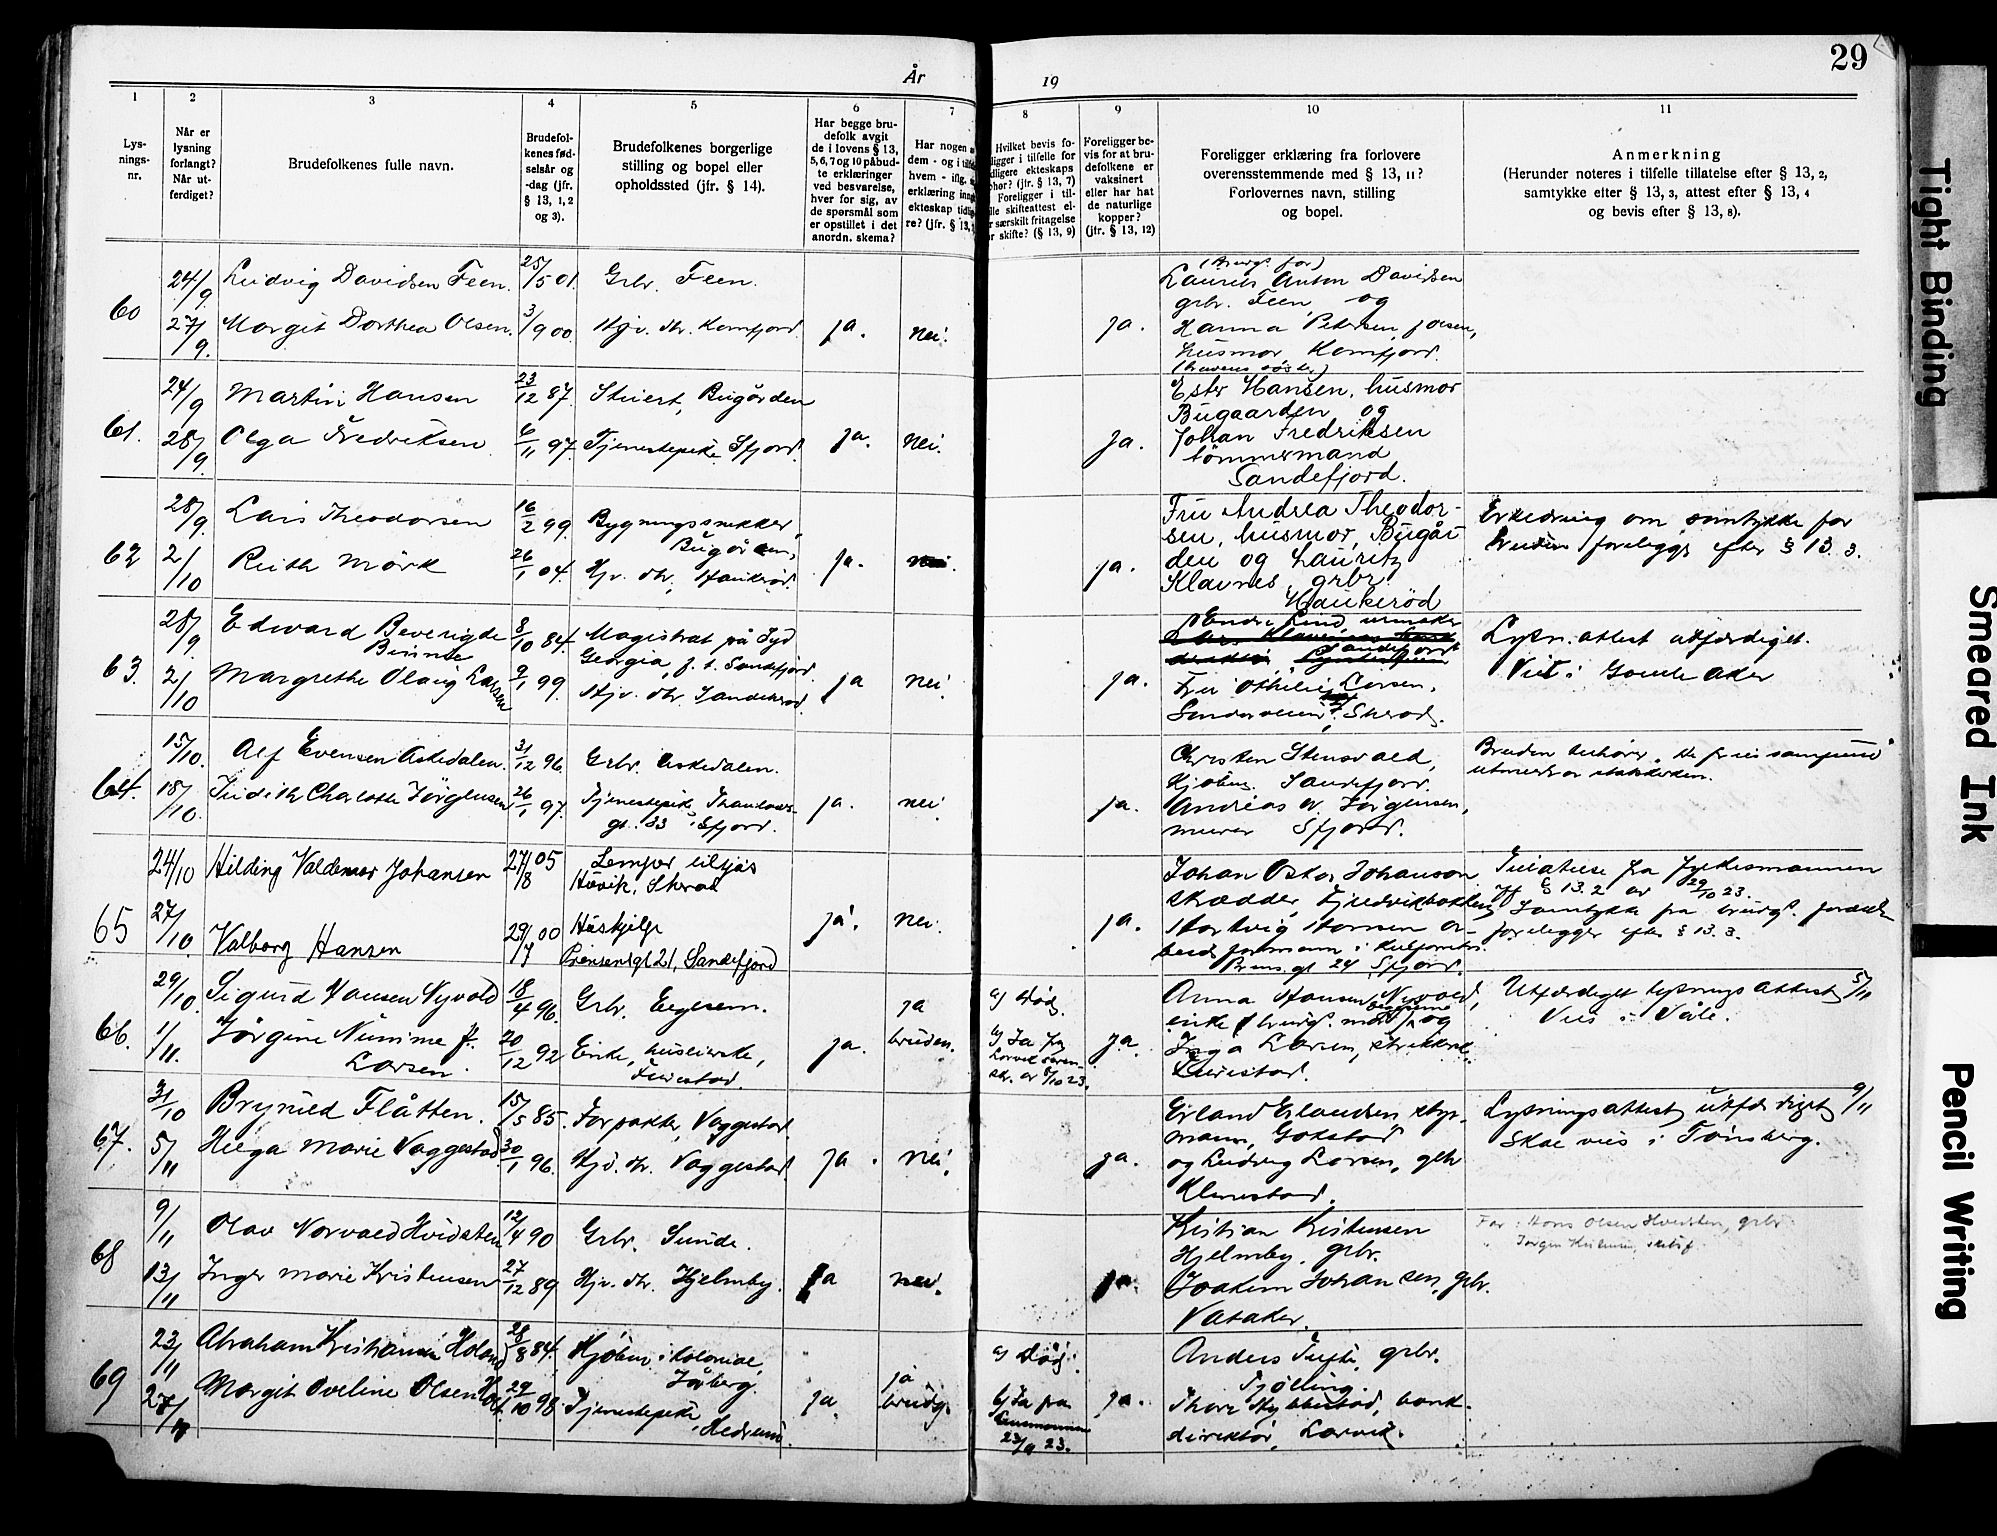 År 19
29
1
2
3
4
5
6
7
8
9
10
11
Lys-
nings-
nr.
Når er
lysning
forlangt?
Når ut-
ferdiget?
Brudefolkenes fulle navn.
Brudefol-
kenes fød-
selsår og
-dag (jfr.
§ 13, 1, 2
og 3).
Brudefolkenes borgerlige
stilling og bopel eller
opholdssted (jfr. § 14).
Har begge bru-
defolk avgit
de i lovens § 13,
5, 6, 7 og 10 påbud-
te erklæringer
ved besvarelse,
hver for sig, av
de spørsmål som
er opstillet i det
anordn. skema?
Har nogen a
dem - og i tilfe
hvem - iflg.
erklæring inng
ekteskap tidlig
re? (jfr. § 13,
Hvilket bevis fo-
ligger i tilfelle for
dligere ekteskaps
phør? (jfr. § 13, 7)
Foreligger i til-
lle skifteattest el-
r særskilt fritagelse
or skifte? (§ 13, 9)
Foreligger be-
vis for at bru-
defolkene er
vaksinert
eller har hat
de naturlige
kopper?
(jfr. § 13, 12)
Foreligger erklæring fra forlovere
overensstemmende med § 13, 11?
Forlovernes navn, stilling
og bopel.
Anmerkning
(Herunder noteres i tilfelle tillatelse efter § 13, 2,
samtykke efter § 13, 3, attest efter § 13, 4
og bevis efter § 13, 8).
60
24/9
Ludvig Davidsen Feen.
25/5 01.
Grbr. Feen.
(brudg. far)
Laurits Anton Davidsen
grbr. Feen, og
27/9.
Margit Dorthea Olsen.
3/9 00
Hjv. dtr. Kamfjord
ja.
nei.
ja.
Hanna Petersen,
husmor Kamfjord.
61.
24/9
Martin Hansen
23/12 87.
Stuert, Bugården
Ester Hansen, husmor
Bugaarden og
28/9.
Olga Fredriksen
6/11 97.
Tjenestepike Sfjord.
ja.
nei.
ja.
Johan Fredriksen
tömmermand
Sandefjord.
62
28/9.
Lars Theodorsen
16/2 99.
Bygningssnekker,
Bugården,
Fru Andrea Theodor-
sen, husmor, Bugår
den og Lauritz
Klavnes, grbr.
Haukeröd
Erklæring om samtykke for
bruden foreligge efter § 13. 3.
2/10
Ruth Mörk
26/1 04.
Hjv. dtr., Haukeröd.
ja.
nei.
ja.
63.
28/9.
Edward Beveridge
Binnie
8/10 84.
Magistrat på Syd
Georgia, f. t. Sandefjord.
Lind urmaker
Sandefjord
Lysn. attest utfærdiget.
Viet i Gamle Aker
2/10
Margrethe Olaug Larsen
9/1 99.
Hjv. dtr. Sandekrod.
ja
nei
ja.
Fru Othilie Larsen,
64.
15/10.
Alf Evensen Askedalen.
31/12 96.
Grbr. Askedalen.
Christen Stensvald,
Kjøbm. Sandefjord.
Bruden tilhører "De frie samfund"
utmeldt av statskirken.
18/10.
Judith Charlotte Jörgensen
26/1 97.
Tjenestepike,
gt. 33 Sfjord.
ja.
nei.
ja.
Andreas A. Jörgensen,
murer Sfjord.
65
24/10
Hilding Valdemar Johansen
27/8 05
Hövik,
Johan Oskar Johanson
skrædder,
Tillatelse fra fylkesmannen
§ 13. 2 av 29/10 23.
27/10.
Valborg Hansen
29/7 00
Hushjelp
Prinsensgt 21, Sandefjord
ja.
nei.
ja.
Hartvig Hansen ar-
beidsformann i
Prins. gt 24 Sfjord.
Samtykke fra brudg. forældre
foreligger efter § 13. 3.
66.
29/10.
Sigurd Hansen Nyvold
18/4 96.
Grbr.
ja
a) død.
Anna Hansen Nyvold,
enke brudg. mor, og
Utfærdiget lysnings attest 5/11
Vies i Våle.
1/11.
Jörgine Numme f.
Larsen.
20/12 92
Enke,
Furestad.
ja.
bruden.
b) Ja fra
Larvik soren-
skr. av 8/10 23.
ja.
Inga Larsen,
Furestad.
67.
31/10
Brynild Flåtten.
15/5 85.
Forpakter, Vaggestad.
Erland Erlandsen styr-
mann, Gokstad
Lysningsattest utfærdiget 9/11
Skal vies i Tønsberg.
5/11
Helga Marie Vaggestad
30/1 96.
Hjv. dtr. Vaggestad.
ja.
nei.
ja.
og Ludvig Larsen, gbr
Klinestad.
68
9/11
Olav Norvald Hvidsten
12/4 90
Grbr. Sunde.
Kristian Kristensen
Hjelmby, grbr.
Far: Hans Olsen Hvidsten, grbr.
13/11
Inger Marie Kristensen
27/12 89
Hjv. dtr. Hjelmby.
ja
nei.
ja.
Joakim Johansen, grbr.
Vataker.
69
23/11
Abraham Kristiansen
28/8 84.
Kjøbm. i kolonial,
Torberg.
a) død.
Anders Tufte, grbr.
Tjølling.
27/11
Margit Oveline Olsen
29/10 98.
Tjenestepike,
Hedrum.
ja.
ja
brudg.
b) Ja fra
23/9 23.
ja.
Thore Nybbestad, bank-
direktør, Larvik.
Tight Binding
Smeared Ink
Pencil Writing